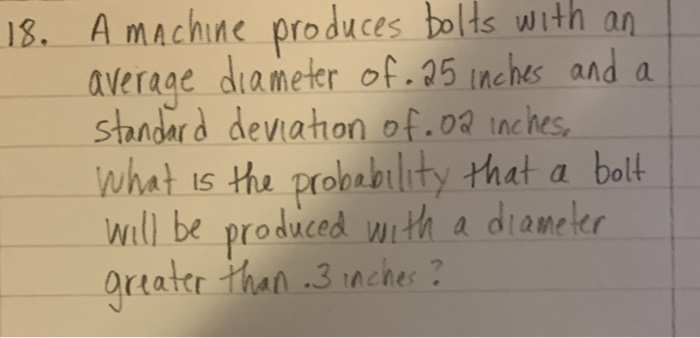 18. A machine produces bolts with an
average diameter of .25 inches and a
standard deviation of .02 inches.
What is the probability that a bolt
will be produced with a diameter
greater than .3 inches?